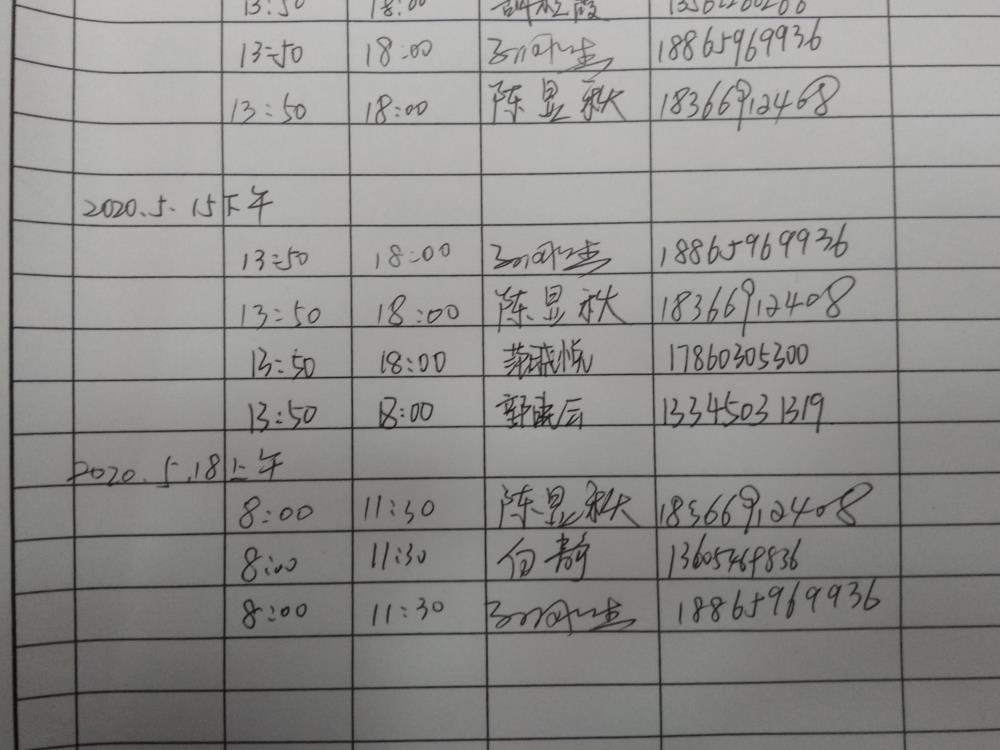 13:50 18:00
13:50 18:00 18865969936
13:50 18:00 陈昱秋 18366912408
2020.5.15下午
13:50 18:00 18865969936
13:50 18:00 陈昱秋 18366912408
13:50 18:00 17860305300
13:50 18:00 13345031319
2020.5.18上午
8:00 11:30 陈昱秋 18366912408
8:00 11:30 白静 13605469836
8:00 11:30 18865969936